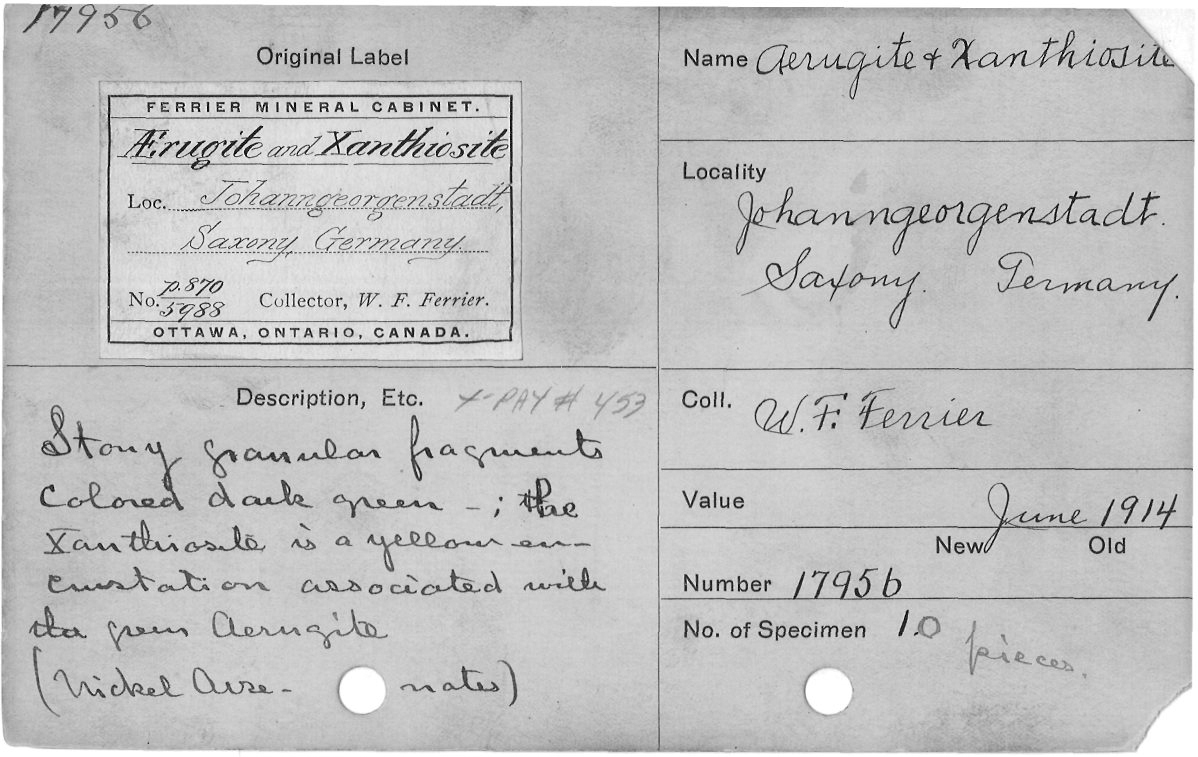 17956
Original Label
FERRIER MINERAL CABINET.
Ærugite and Xanthiosite
Loc. Johanngeorgenstadt,
Saxony, Germany.
No. p.870/5988 Collector, W. F. Ferrier.
OTTAWA, ONTARIO, CANADA.
Description, Etc. X-RAY # 453
Stony granular fragments
colored dark green - ; the
Xanthiosite is a yellow en-
crustation associated with
the green Aerugite
(Nickel Arse- nates)
Name Aerugite + Xanthiosite
Locality
Johanngeorgenstadt.
Saxony. Germany.
Coll. W. F. Ferrier
Value June 1914
New Old
Number 17956
No. of Specimen 10 pieces.